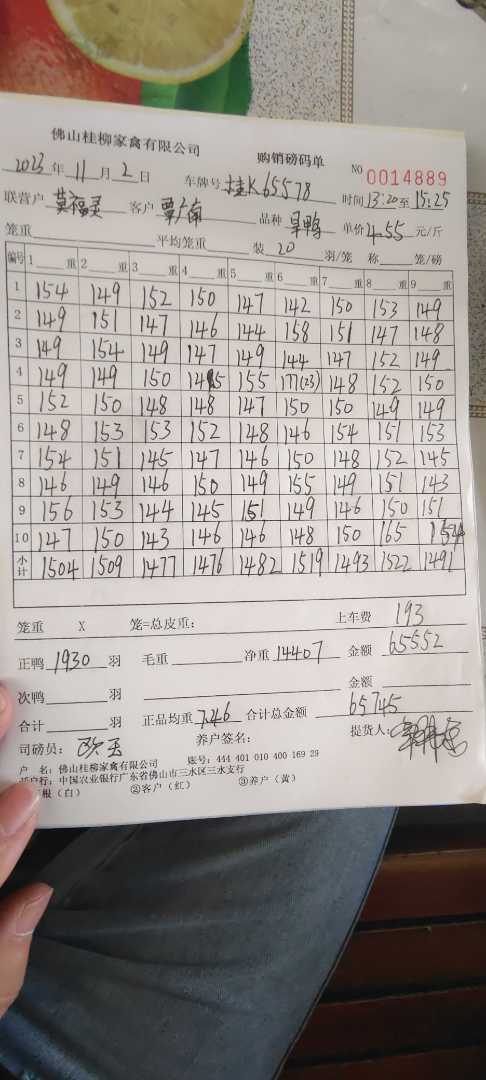 佛山桂柳家禽有限公司 购销磅码单
2023年 11 月 2 日 车牌号 桂K65578 NO 0014889
联营户 莫福灵 客户 覃广南 品种 旱鸭 时间13:20至15:25
单价 4.55 元/斤
笼重 平均笼重 装 20 羽/笼 称 笼/磅
编号 1 重 2 重 3 重 4 重 5 重 6 重 7 重 8 重 9 重
1 154 149 152 150 147 142 150 153 149
2 149 151 147 146 144 158 151 147 148
3 149 154 149 147 149 144 147 152 149
4 149 149 150 145 155 177(23) 148 152 150
5 152 150 148 148 147 150 150 149 149
6 148 153 153 152 148 146 154 151 153
7 154 151 145 147 146 150 148 152 145
8 146 149 146 150 149 155 149 151 143
9 156 153 144 145 151 149 146 150 151
10 147 150 143 146 146 148 150 165 154
小计 1504 1509 1477 1476 1482 1519 1493 1522 1491
笼重 X 笼=总皮重: 上车费 193
正鸭 1930 羽 毛重 净重 14407 金额 65552
次鸭 羽 金额
合计 羽 正品均重 7.46 合计总金额 65745
司磅员: 养户签名: 提货人:
户 名: 佛山桂柳家禽有限公司 账号: 444 401 010 400 169 29
开户行: 中国农业银行广东省佛山市三水区三水支行
根(白) ②客户(红) ③养户(黄)